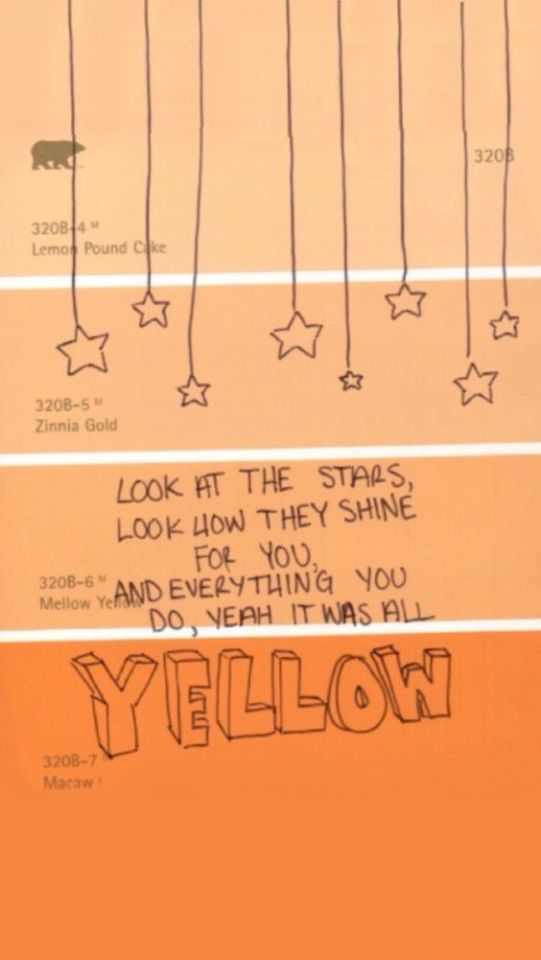 320B
320B-4 M
Lemon Pound Cake
320B-5 M
Zinnia Gold
LOOK AT THE STARS,
LOOK HOW THEY SHINE
FOR YOU,
320B-6 M
Mellow Yellow
AND EVERYTHING YOU
DO, YEAH IT WAS ALL
YELLOW
320B-7
Macaw